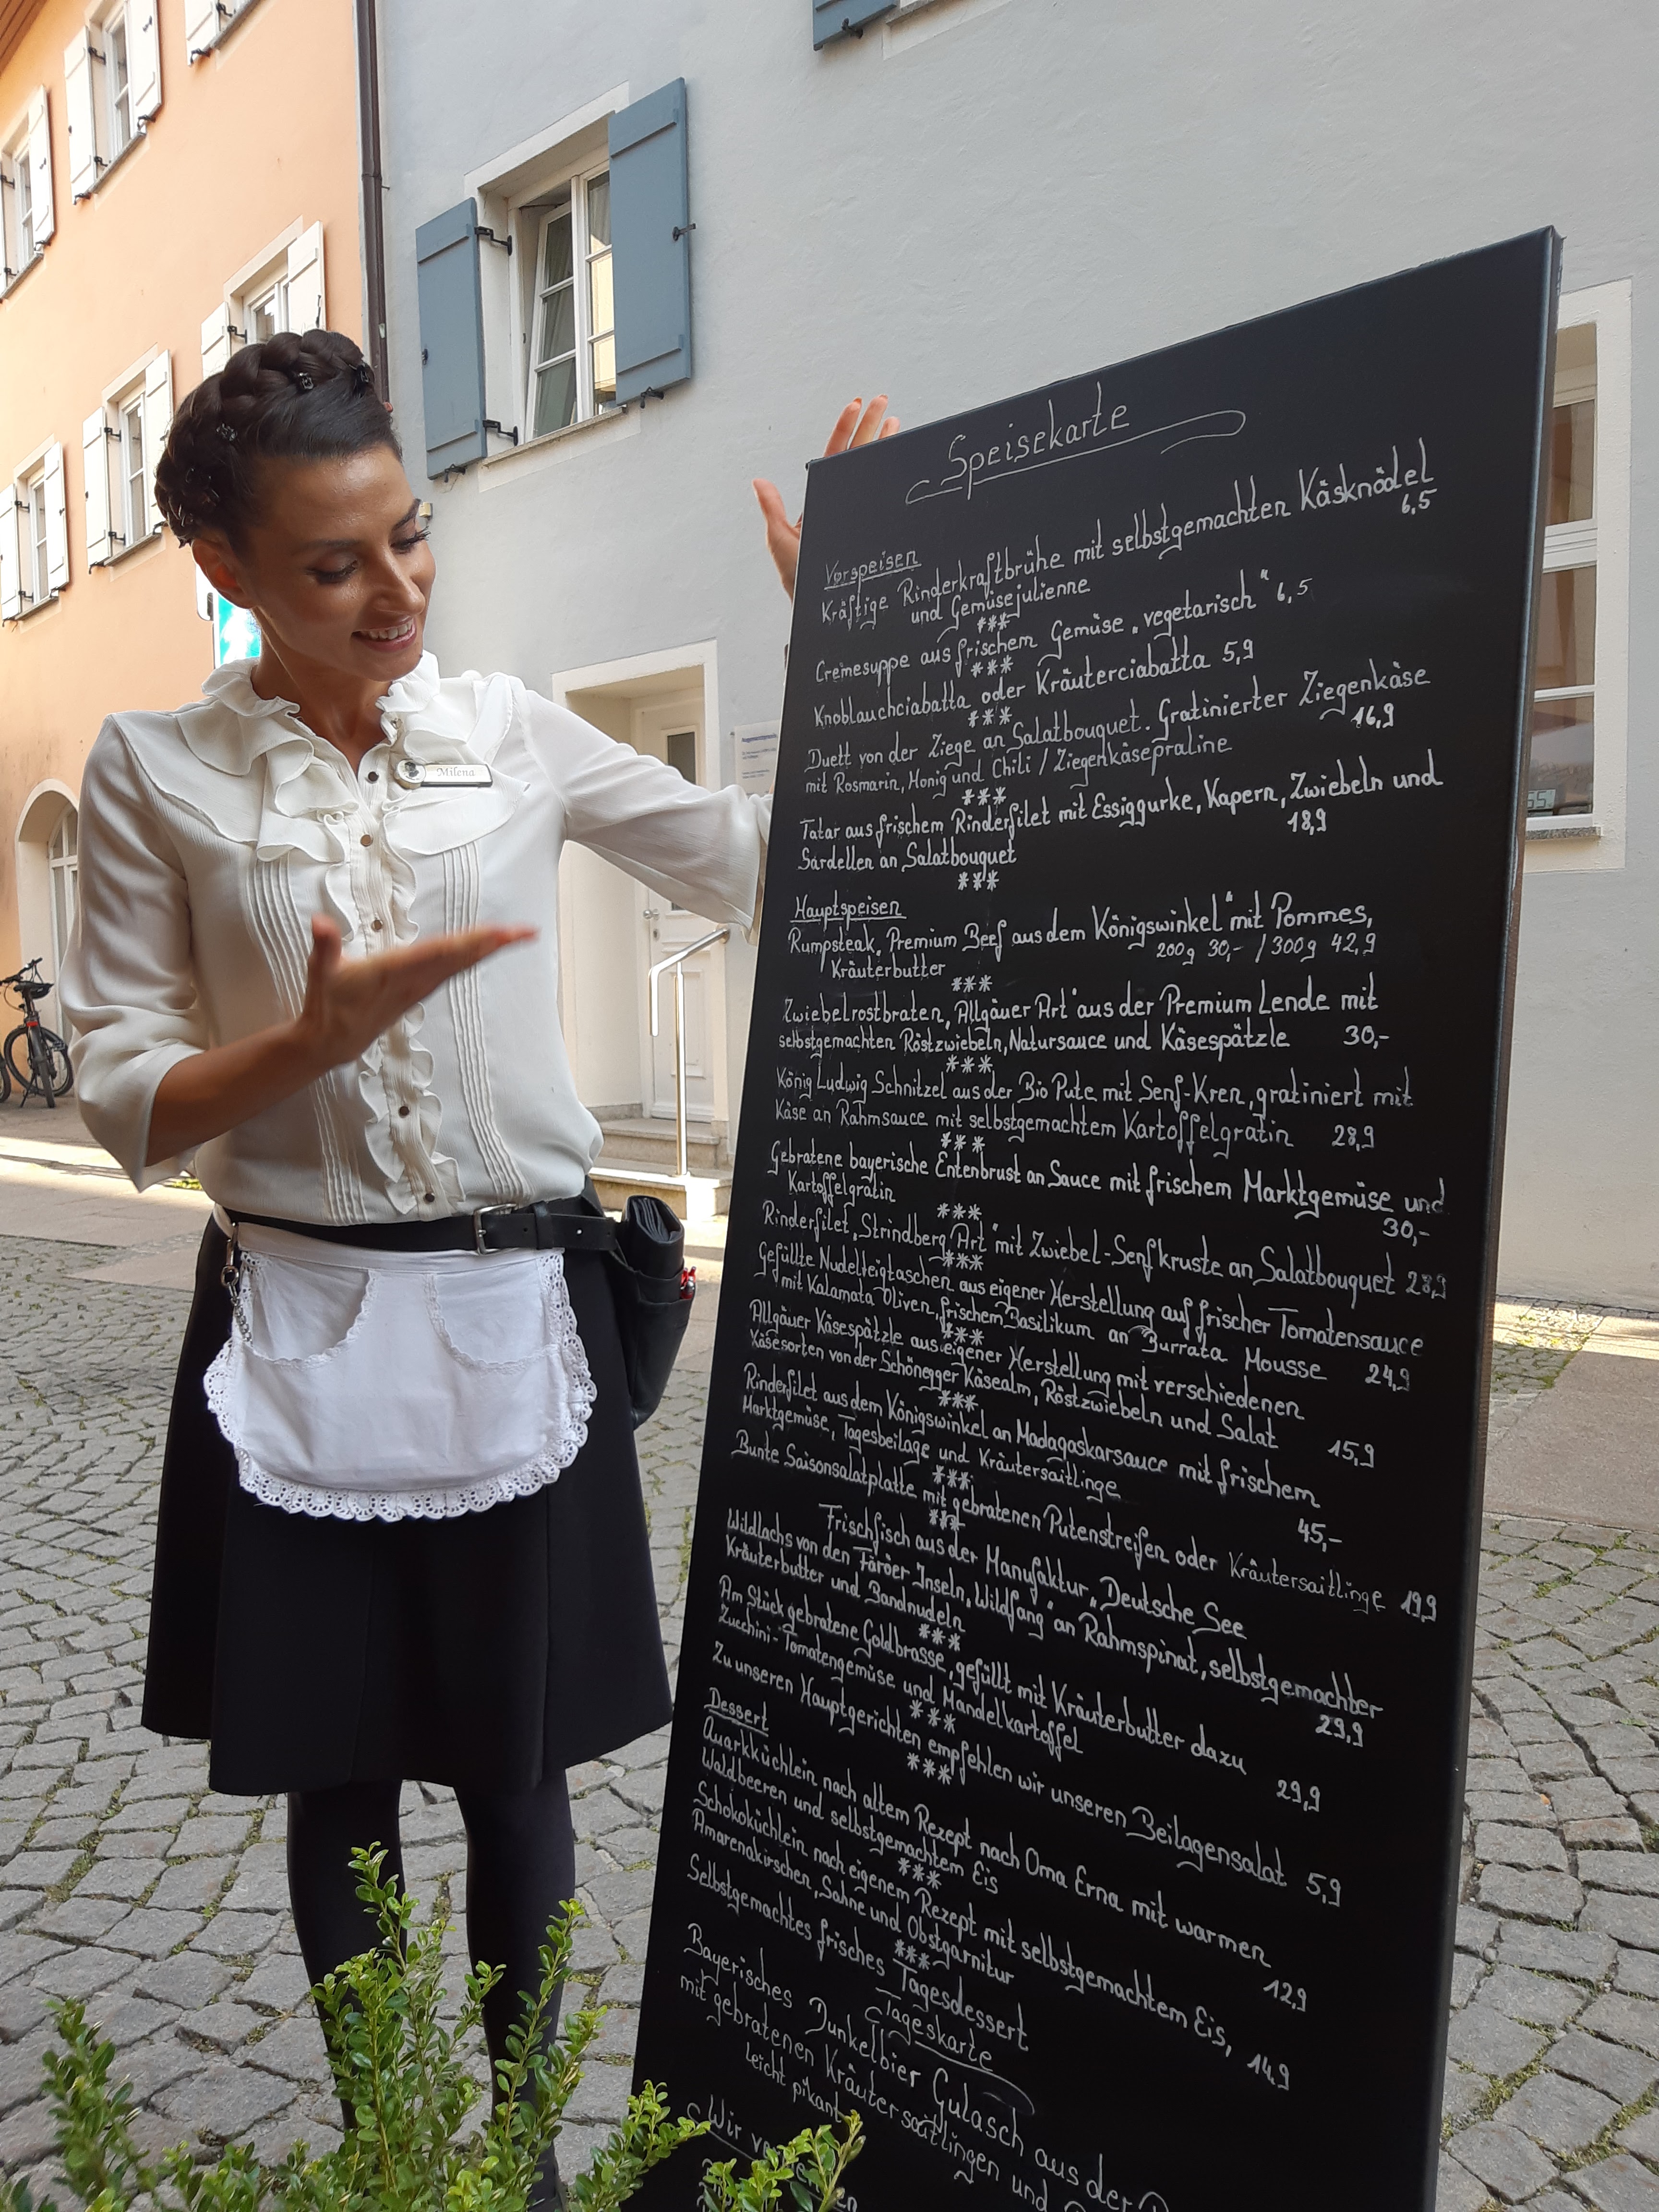 Milena
Speisekarte
Vorspeisen
Kräftige Rinderkraftbrühe mit selbstgemachten Käsknödel
6,5
und Gemüsejulienne
***
Cremesuppe aus frischem Gemüse „vegetarisch“ 6,5
***
Knoblauchciabatta oder Kräuterciabatta 5,9
***
Duett von der Ziege an Salatbouquet. Gratinierter Ziegenkäse
16,9
mit Rosmarin, Honig und Chili / Ziegenkäsepraline
***
Tatar aus frischem Rinderfilet mit Essiggurke, Kapern, Zwiebeln und
18,9
Sardellen an Salatbouquet
***
Hauptspeisen
Rumpsteak „Premium Beef aus dem Königswinkel“ mit Pommes,
200g 30,- / 300g 42,9
Kräuterbutter
***
Zwiebelrostbraten „Allgäuer Art“ aus der Premium Lende mit
selbstgemachten Röstzwiebeln, Natursauce und Käsespätzle 30,-
***
König Ludwig Schnitzel aus der Bio Pute mit Senf-Kren, gratiniert mit
Käse an Rahmsauce mit selbstgemachtem Kartoffelgratin 28,9
***
Gebratene bayerische Entenbrust an Sauce mit frischem Marktgemüse und
Kartoffelgratin 30,-
***
Rinderfilet „Strindberg Art“ mit Zwiebel-Senfkruste an Salatbouquet 28,9
***
Gefüllte Nudelteigtaschen aus eigener Herstellung auf frischer Tomatensauce
mit Kalamata Oliven, frischem Basilikum an Burrata Mousse 24,9
***
Allgäuer Käsespätzle aus eigener Herstellung mit verschiedenen
Käsesorten von der Schönegger Käsealm, Röstzwiebeln und Salat 15,9
***
Rinderfilet aus dem Königswinkel an Madagaskarsauce mit frischem
Marktgemüse, Tagesbeilage und Kräutersaitlinge 45,-
***
Bunte Saisonsalatplatte mit gebratenen Putenstreifen oder Kräutersaitlinge 19,9
***
Frischfisch aus der Manufaktur „Deutsche See
Wildlachs von den Färöer Inseln „Wildfang“ an Rahmspinat, selbstgemachter
Kräuterbutter und Bandnudeln 29,9
***
Am Stück gebratene Goldbrasse, gefüllt mit Kräuterbutter dazu
Zucchini-Tomatengemüse und Mandelkartoffel 29,9
***
Zu unseren Hauptgerichten empfehlen wir unseren Beilagensalat 5,9
***
Dessert
Quarkküchlein nach altem Rezept nach Oma Erna mit warmen
Waldbeeren und selbstgemachtem Eis 12,9
***
Schokoküchlein nach eigenem Rezept mit selbstgemachtem Eis,
Amarenakirschen, Sahne und Obstgarnitur 14,9
***
Selbstgemachtes frisches Tagesdessert
Tageskarte
Bayerisches Dunkelbier Gulasch aus der
mit gebratenen Kräutersaitlingen und
leicht pikant
Wir